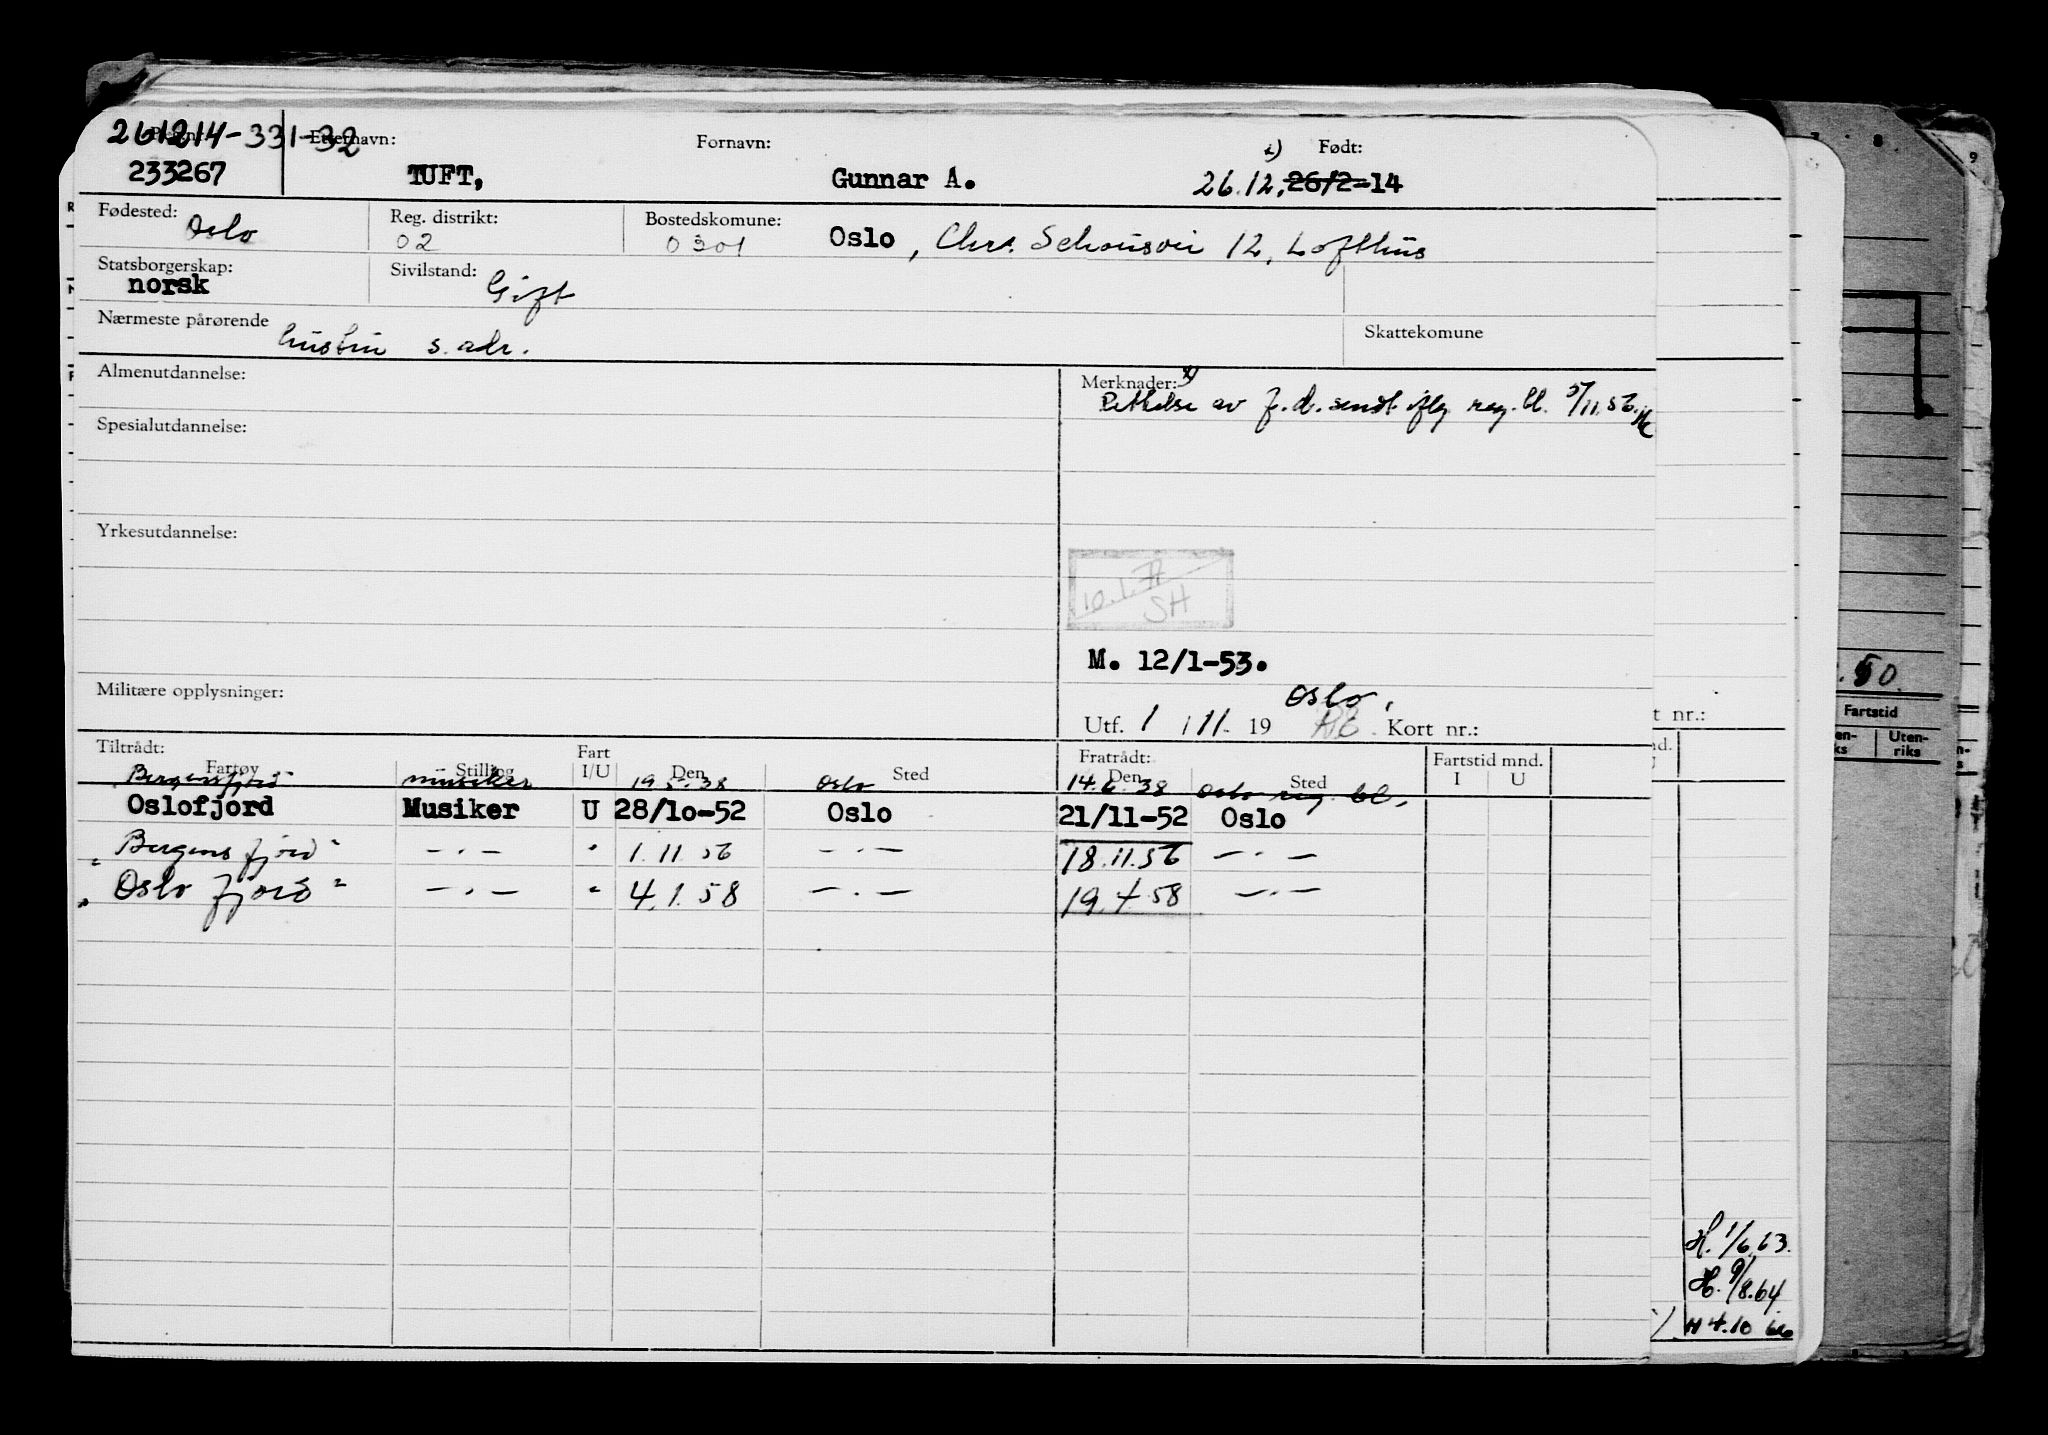 261214-331-32
Reg.nr. Etternavn: Fornavn: x) Født:
233267 TUFT, Gunnar A. 26.12. 26/2-14
Fødested: Oslo Reg. distrikt: 02 Bostedskomune: 0301 Oslo, Chr. Schousvei 12, Lofthus
Statsborgerskap: norsk Sivilstand: Gift
Nærmeste pårørende hustru s. adr. Skattekomune
Almenutdannelse: Merknader: x)
Rettelse av f.d. sendt iflg reg. bl. 5/11.56.
Spesialutdannelse:
Yrkesutdannelse:
10.1.77
SH
M. 12/1-53.
Militære opplysninger: Oslo,
Utf. 1 / 11 - 19 Kort nr.:
Tiltrådt: Fart Fratrådt: Fartstid mnd.
Fartøy Stilling I/U Den Sted Den Sted I U
Bergensfjord musiker 19.5.38 Oslo 14.6.38 Oslo reg. bl,
Oslofjord Musiker U 28/10-52 Oslo 21/11-52 Oslo
" Bergensfjord " — . — " 1.11.56 — . — 18.11.56 — . —
" Oslofjord " — . — " 4.1.58 — . — 19.4.58 — . —
t nr.:
.50
Fartstid
Uten-
riks
H. 1/6.63.
H. 9/8.64
H 4.10 66